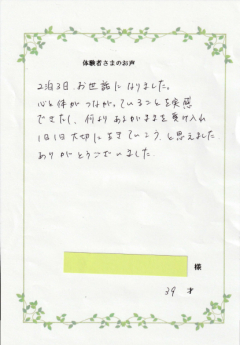 体験者さまのお声
2泊3日、お世話になりました。
心と体がつながっていることを実感
できたし、何よりあるがままを受け入れ
1日1日大切に生きていこう、と思えました
ありがとうございました。
様
39 才